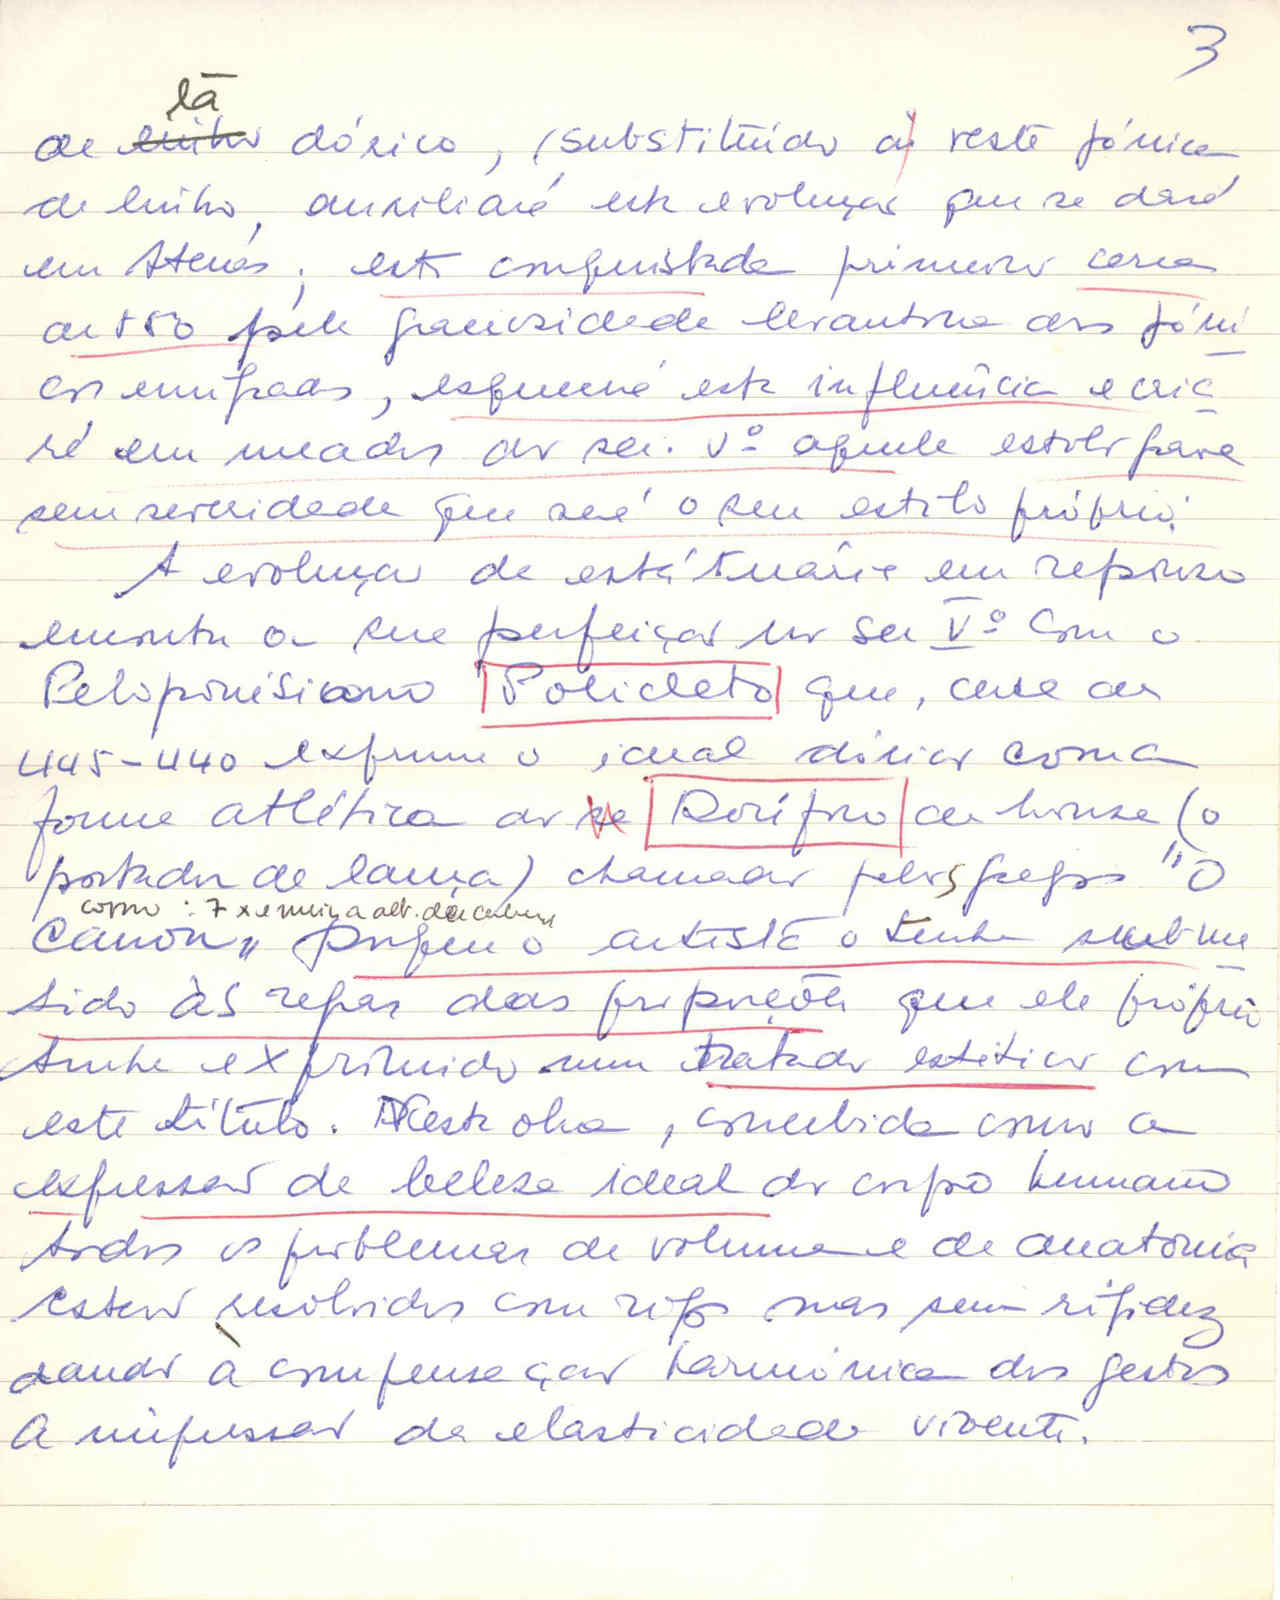 3
lã
de linho dórico, (substituindo a veste jónica
de linho, auxiliará esta evolução que se dará
em Atenas; esta conquistada primeiro cerca
de 550 pela graciosidade levantina dos jóni
cos emigrados, esquece esta influência e cria
rá em meados do séc. Vº aquele estilo grave
sem severidade que será o seu estilo próprio.
A evolução da estatuária em repouso
encontra a sua perfeição no séc Vº com o
Peloponésicono Policleto que, cerca de
445-440 exprime o ideal dórico com a
forma atlética do se Doríforo de bronze (o
portador de lança) chamado pelos gregos "O
corpo : 7 x e meia a alt. da cabeça
Canon" porque o artista o tenha subme
tido às regras das proporções que ele próprio
tinha exprimido num tratado estético com
este título. Nesta obra, concebida como a
expressão da beleza ideal do corpo humano
todos os problemas de volume e de anatomia
estão resolvidos com rigor mas sem rigidez
dando à compensação harmónica dos gestos
a impressão da elasticidade vivente.